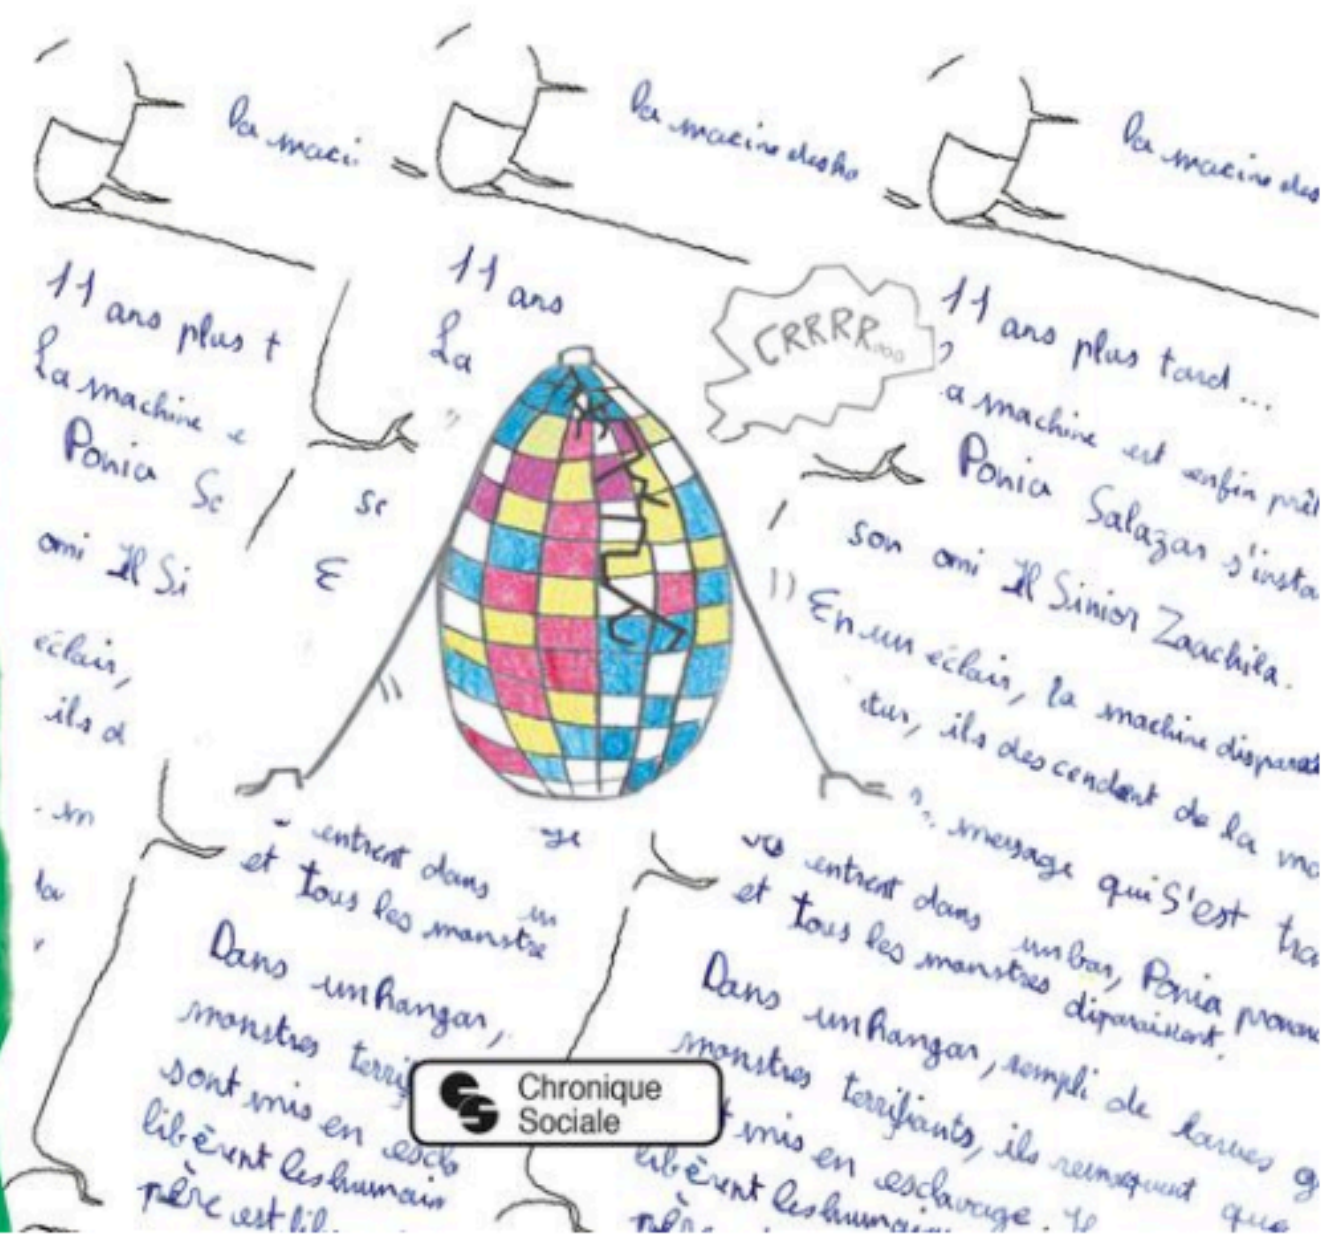 la maci
la macine desho
la macine des
11 ans plus t
La machine e
Ponia Sc
omi Il Si
éclair,
ils d
11 ans
La
CRRRR...
Sc
E
11 ans plus tard...
a machine est enfin prêt
Ponia Salazar s'insta
son omi Il Sinior Zaachila.
En un éclair, la machine disparaît
tur, ils descendent de la ma
message qui S'est tra
entrent dans un
et tous les monstre
Dans un hangar,
monstres terrif
sont mis en escla
libèrent les humais
père est li
entrent dans un bar, Ponia pronon
et tous les monstres disparaissent.
Dans un hangar, rempli de larves g
monstres terrifiants, ils remarquent que
t mis en esclavage. Il
libèrent les humain
père
Chronique
Sociale